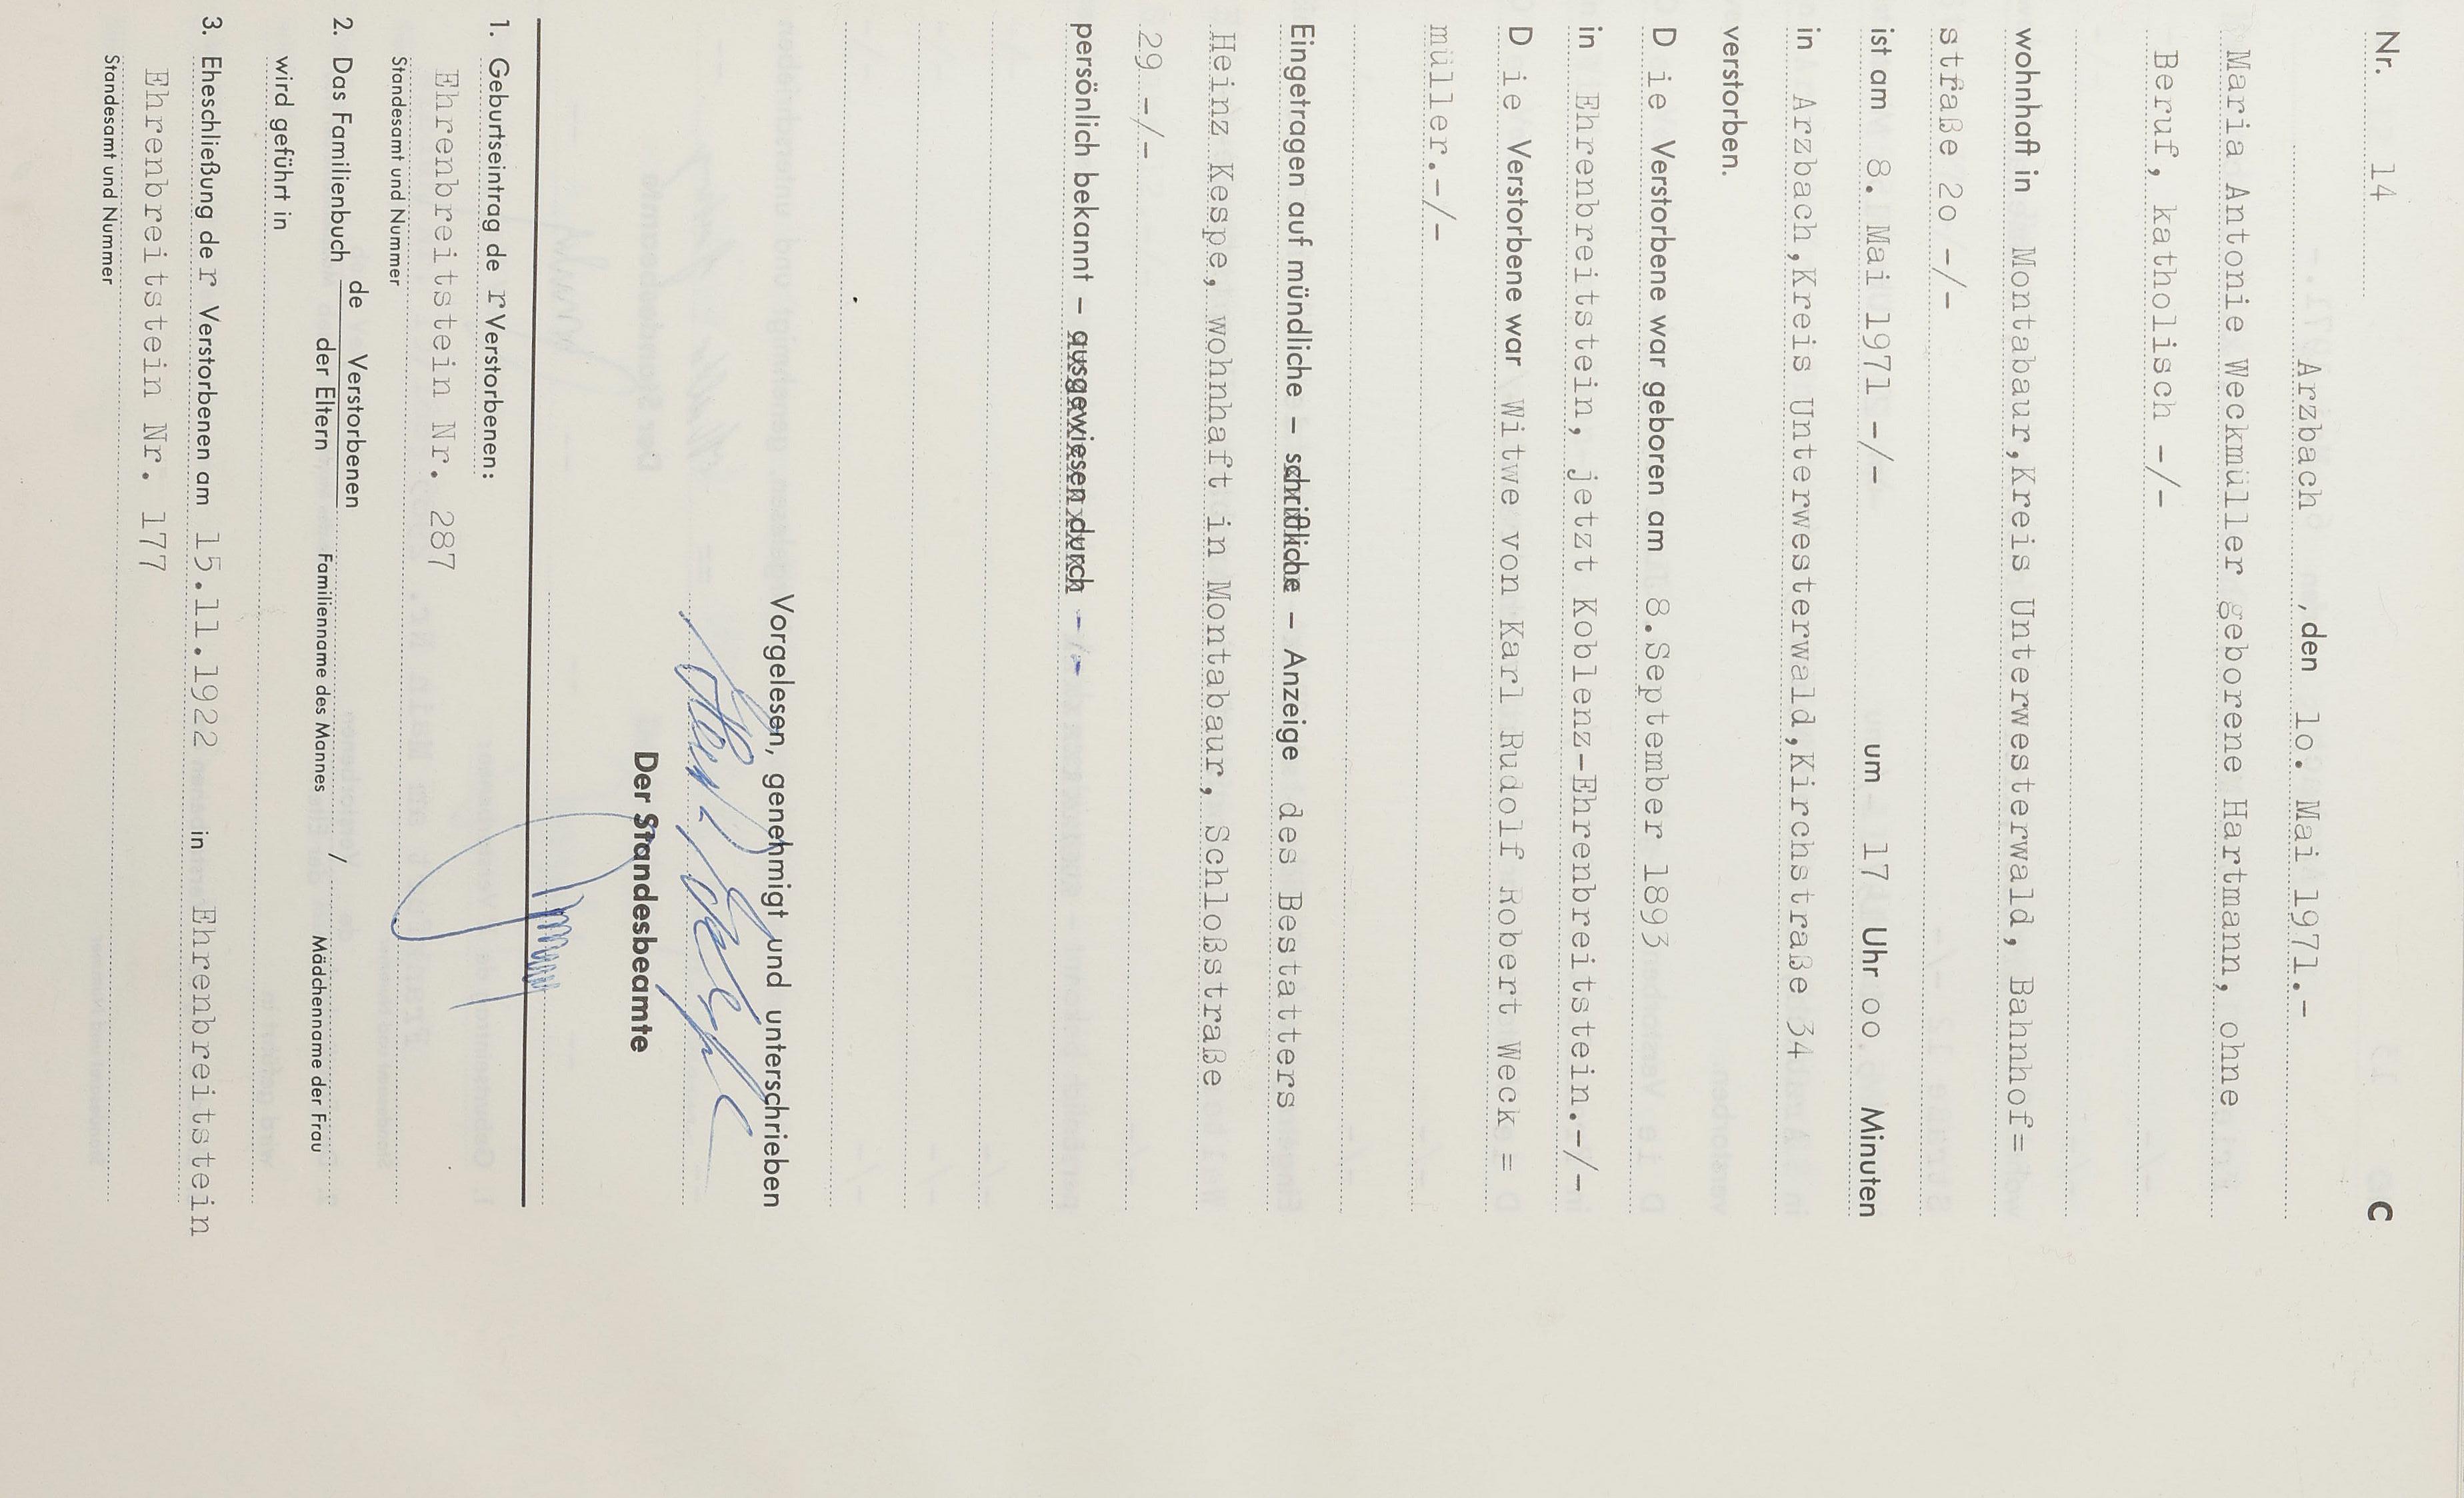 Nr. 14 C
Arzbach , den 1o. Mai 1971.-
Maria Antonie Weckmüller geborene Hartmann, ohne
Beruf, katholisch -/-
wohnhaft in Montabaur,Kreis Unterwesterwald, Bahnhof=
straße 2o -/-
ist am 8. Mai 1971 -/- um 17 Uhr oo Minuten
in Arzbach,Kreis Unterwesterwald,Kirchstraße 34
verstorben.
D ie Verstorbene war geboren am 8.September 1893
in Ehrenbreitstein, jetzt Koblenz-Ehrenbreitstein.-/-
D ie Verstorbene war Witwe von Karl Rudolf Robert Weck =
müller.-/-
Eingetragen auf mündliche – schriftliche – Anzeige des Bestatters
Heinz Kespe, wohnhaft in Montabaur, Schloßstraße
29 -/-
persönlich bekannt – ausgewiesen durch - -/-
Vorgelesen, genehmigt und unterschrieben
Der Standesbeamte
1. Geburtseintrag de r Verstorbenen:
Ehrenbreitstein Nr. 287
Standesamt und Nummer
2. Das Familienbuch de Verstorbenen
der Eltern Familienname des Mannes / Mädchenname der Frau
wird geführt in
3. Eheschließung de r Verstorbenen am 15.11.1922 in Ehrenbreitstein
Ehrenbreitstein Nr. 177
Standesamt und Nummer